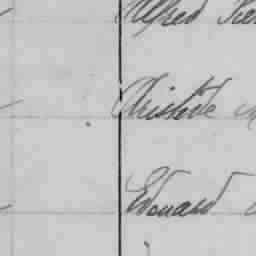 Alfred
Aristide
Edouard